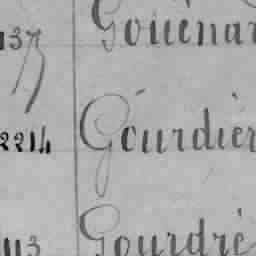 137 Gouéna
2214 Gourdier
113 Gourdré